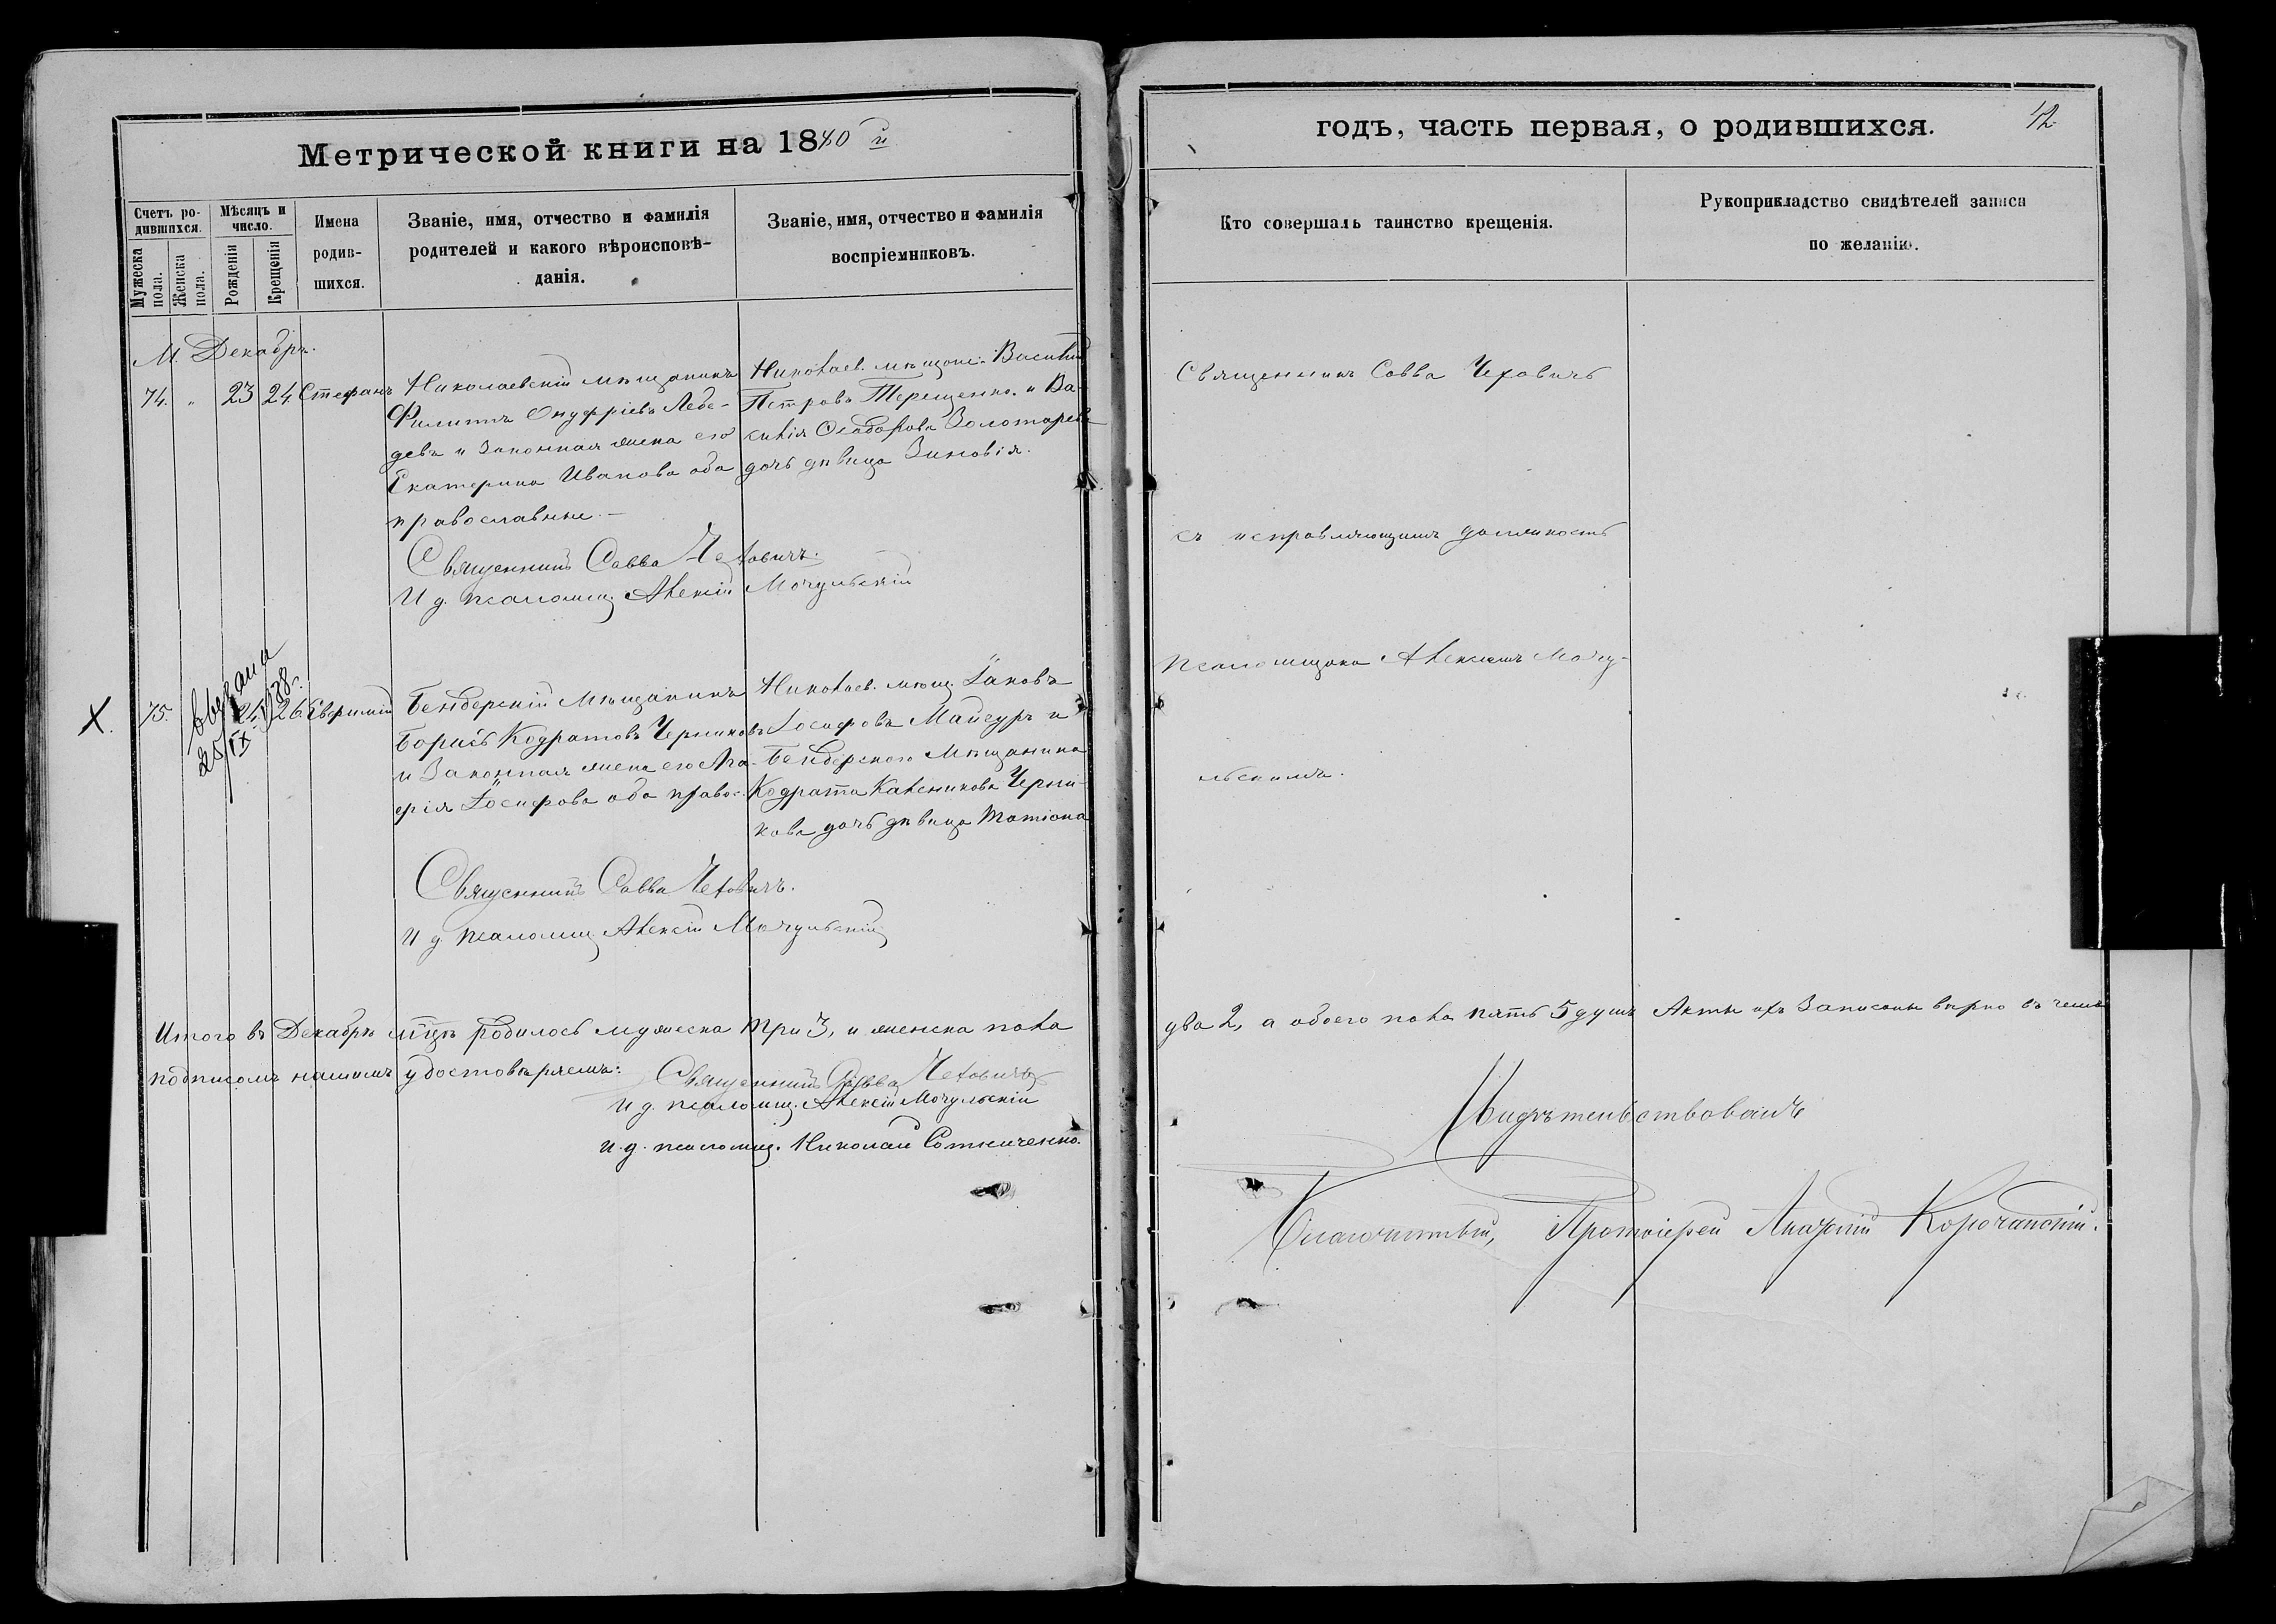 Метрической книги на 1880 й
Счетъ ро-
дившихся.
Мужеска
пола.
Женска
пола.
Мѣсяцъ и
число.
Рожденія
Крещенія
Имена
родив-
шихся.
Званіе, имя, отчество и фамилія
родителей и какого вѣроисповѣ-
данія.
Званіе, имя, отчество и фамилія
воспріемниковъ.
М. Декабрь.
74. „ 23 24. Стефанъ
Николаевскій мѣщанинъ
Филиппъ Онуфріевъ Лебе-
девъ и Законная жена его
Екатерина Иванова оба
православные. –
Николаев. мѣщане: Василій
Петровъ Терещенко и Ва-
силія Ѳеодорова Золотарева
дочь дѣвица Зиновія.
Священникъ Савва Чехович.
И д. псаломщ Алексій Мочульскій
X.
75. 26. Евфимій
Выдана
25/IX
Бендерскій Мѣщанинъ
Борисъ Кодратовъ Черниковъ
и Законная жена его Ма-
ѳоѳія Іосифова оба правос.
Николаев. мѣщ. Іаковъ
Іосифовъ Майгуръ и
Бендерскаго Мѣщанина
Кодрата Каленикова Черни-
кова дочь дѣвица Татіана
Священникъ Савва Чехович.
И д псаломщ Алексій Мочульскій
Итого въ Декабрѣ м̃цѣ родилось мужеска три 3, и женска пола
подписомъ нашимъ удостовѣряемъ:
Священникъ Савва Чехович
И д. псаломщ. Алексій Мочульскій
и. д. псаломщ. Николай Сотниченко.
годъ, часть первая, о родившихся.
42
Кто совершалъ таинство крещенія.
Рукоприкладство свидѣтелей записи
по желанію.
Священникъ Савва Чеховичъ
съ исправляющимъ должность
псаломщика Алексѣемъ Мочу-
льскимъ.
два 2, а обоего пола пять 5 душъ Акты ихъ Записаны вѣрно въ чемъ
Свидѣтельствовалъ
Благочинный, Протоіерей Андрей Корочанскій.